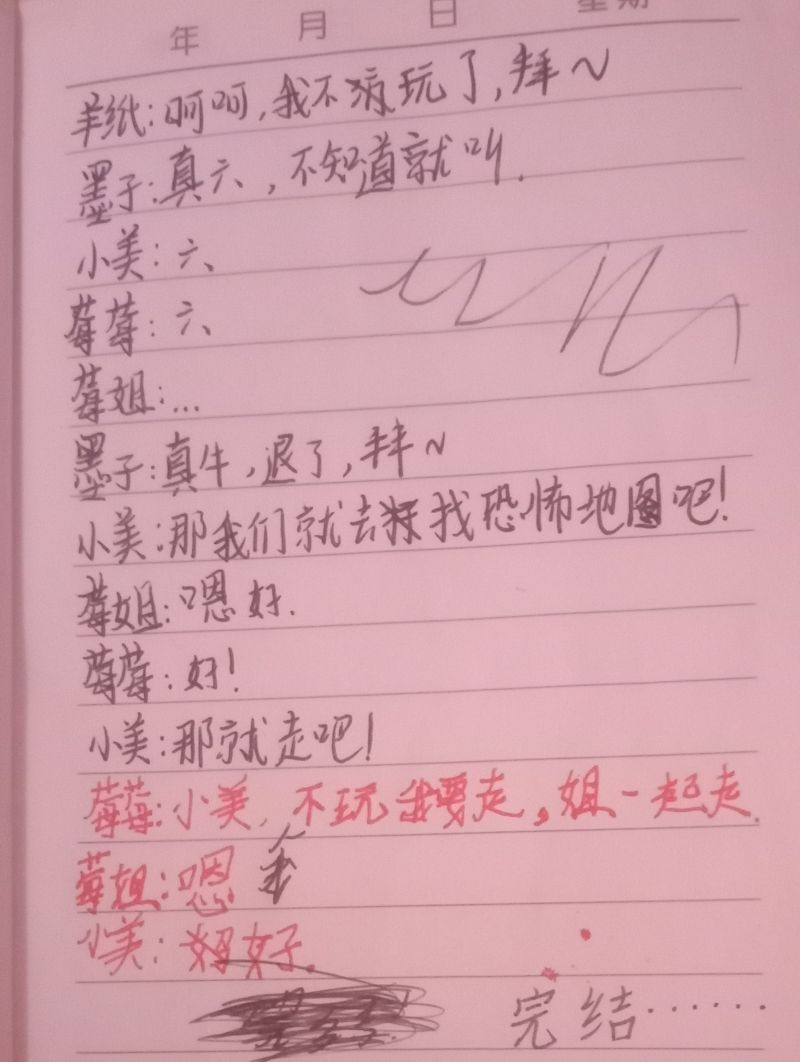 年 月 日 星期
羊纸:呵呵,我不玩了,拜~
墨子:真六,不知道就叫.
小美:六、
莓莓:六、
莓姐:...
墨子:真牛,退了,拜~
小美:那我们就去找恐怖地图吧!
莓姐:嗯好.
莓莓:好!
小美:那就走吧!
莓莓:小美,不玩我要走,姐一起走.
莓姐:嗯
小美:好.
完结······